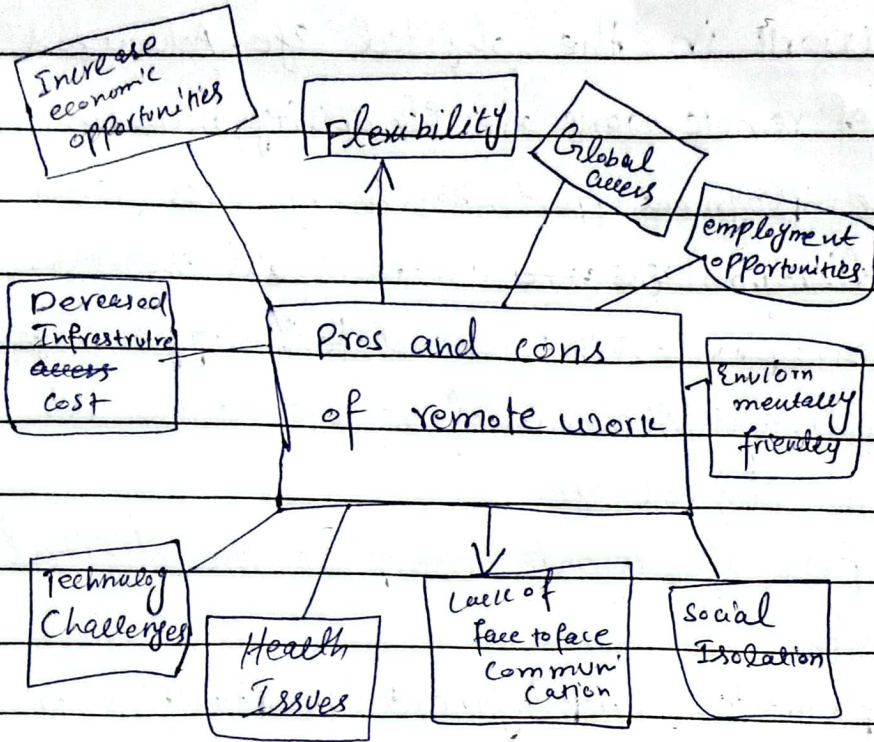 Increase
economic
opportunities
Flexibility
Global
access
employment
opportunities
Dereased
Infrastrutre
access
cost
Pros and cons
of remote work
Enviorn
mentally
friendly
Technology
Challenges
Health
Issues
Lack of
face to face
communi
cation
Social
Isolation